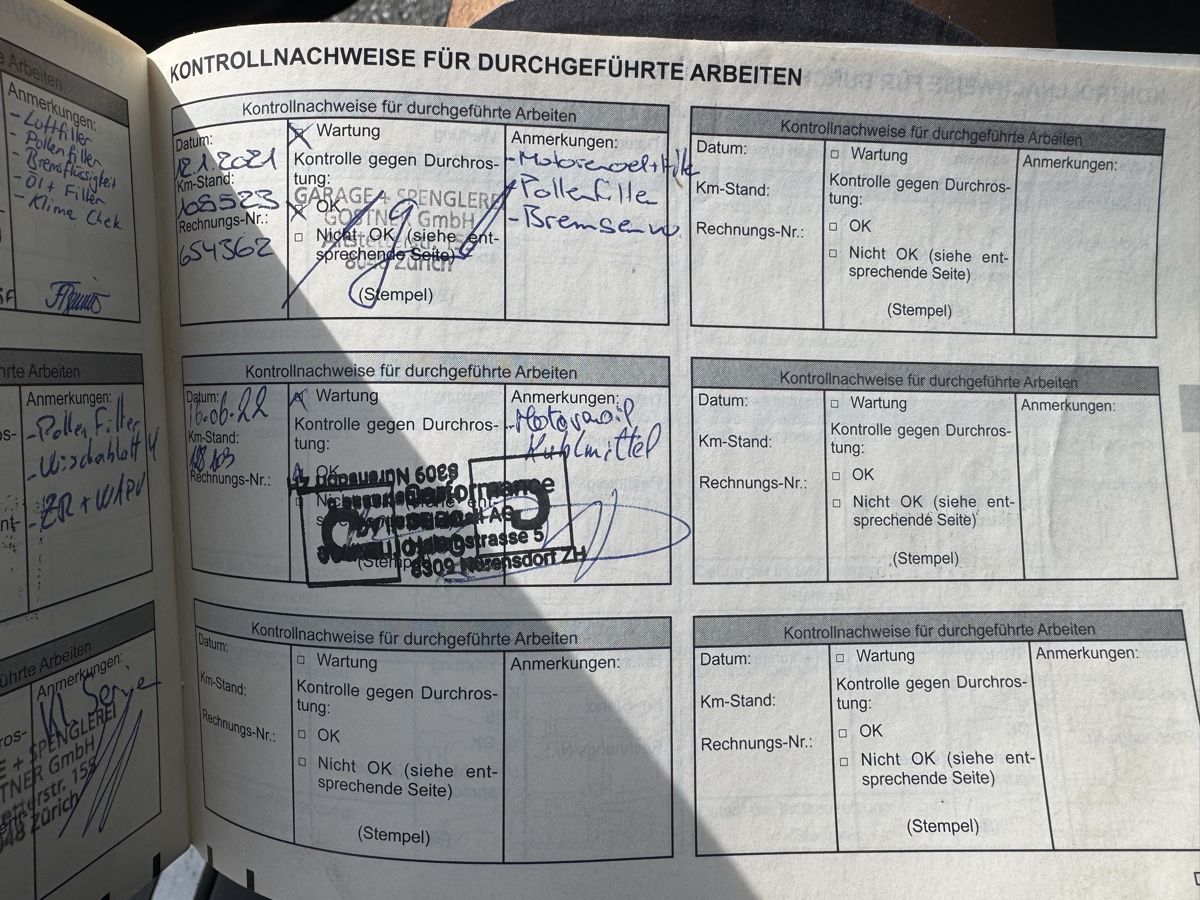 te Arbeiten
Anmerkungen:
- Luftfilter
- Pollenfilter
- Bremsflüssigkeit
- Öl + Filter
- Klima Chek
rte Arbeiten
Anmerkungen:
- Pollen Filter
- Wischablatt
- ZR + WAPU
ührte Arbeiten
Anmerkungen:
E + SPENGLEREI
TNER GmbH
etterstr. 158
048 Zürich
KONTROLLNACHWEISE FÜR DURCHGEFÜHRTE ARBEITEN
Kontrollnachweise für durchgeführte Arbeiten
Datum:
12.1.2021
Km-Stand:
108523
Rechnungs-Nr.:
654362
Wartung
Kontrolle gegen Durchros-
tung:
OK
Nicht OK (siehe ent-
sprechende Seite)
(Stempel)
GARAGE + SPENGLERE
GOSTNER GmbH
Zürich
Anmerkungen:
- Motorenoel +
- Pollenfilter
- Bremsenw.
Kontrollnachweise für durchgeführte Arbeiten
Datum:
Km-Stand:
Rechnungs-Nr.:
Wartung
Kontrolle gegen Durchros-
tung:
OK
Nicht OK (siehe ent-
sprechende Seite)
(Stempel)
Anmerkungen:
Kontrollnachweise für durchgeführte Arbeiten
Datum:
16.06.22
Km-Stand:
Rechnungs-Nr.:
Wartung
Kontrolle gegen Durchros-
tung:
OK
8309 Nürensdorf ZH
strasse 5
8309 Nürensdorf ZH
Anmerkungen:
- Motorenoil
Kühlmittel
Kontrollnachweise für durchgeführte Arbeiten
Datum:
Km-Stand:
Rechnungs-Nr.:
Wartung
Kontrolle gegen Durchros-
tung:
OK
Nicht OK (siehe ent-
sprechende Seite)
(Stempel)
Anmerkungen:
Kontrollnachweise für durchgeführte Arbeiten
Datum:
Km-Stand:
Rechnungs-Nr.:
Wartung
Kontrolle gegen Durchros-
tung:
OK
Nicht OK (siehe ent-
sprechende Seite)
(Stempel)
Anmerkungen:
Kontrollnachweise für durchgeführte Arbeiten
Datum:
Km-Stand:
Rechnungs-Nr.:
Wartung
Kontrolle gegen Durchros-
tung:
OK
Nicht OK (siehe ent-
sprechende Seite)
(Stempel)
Anmerkungen: